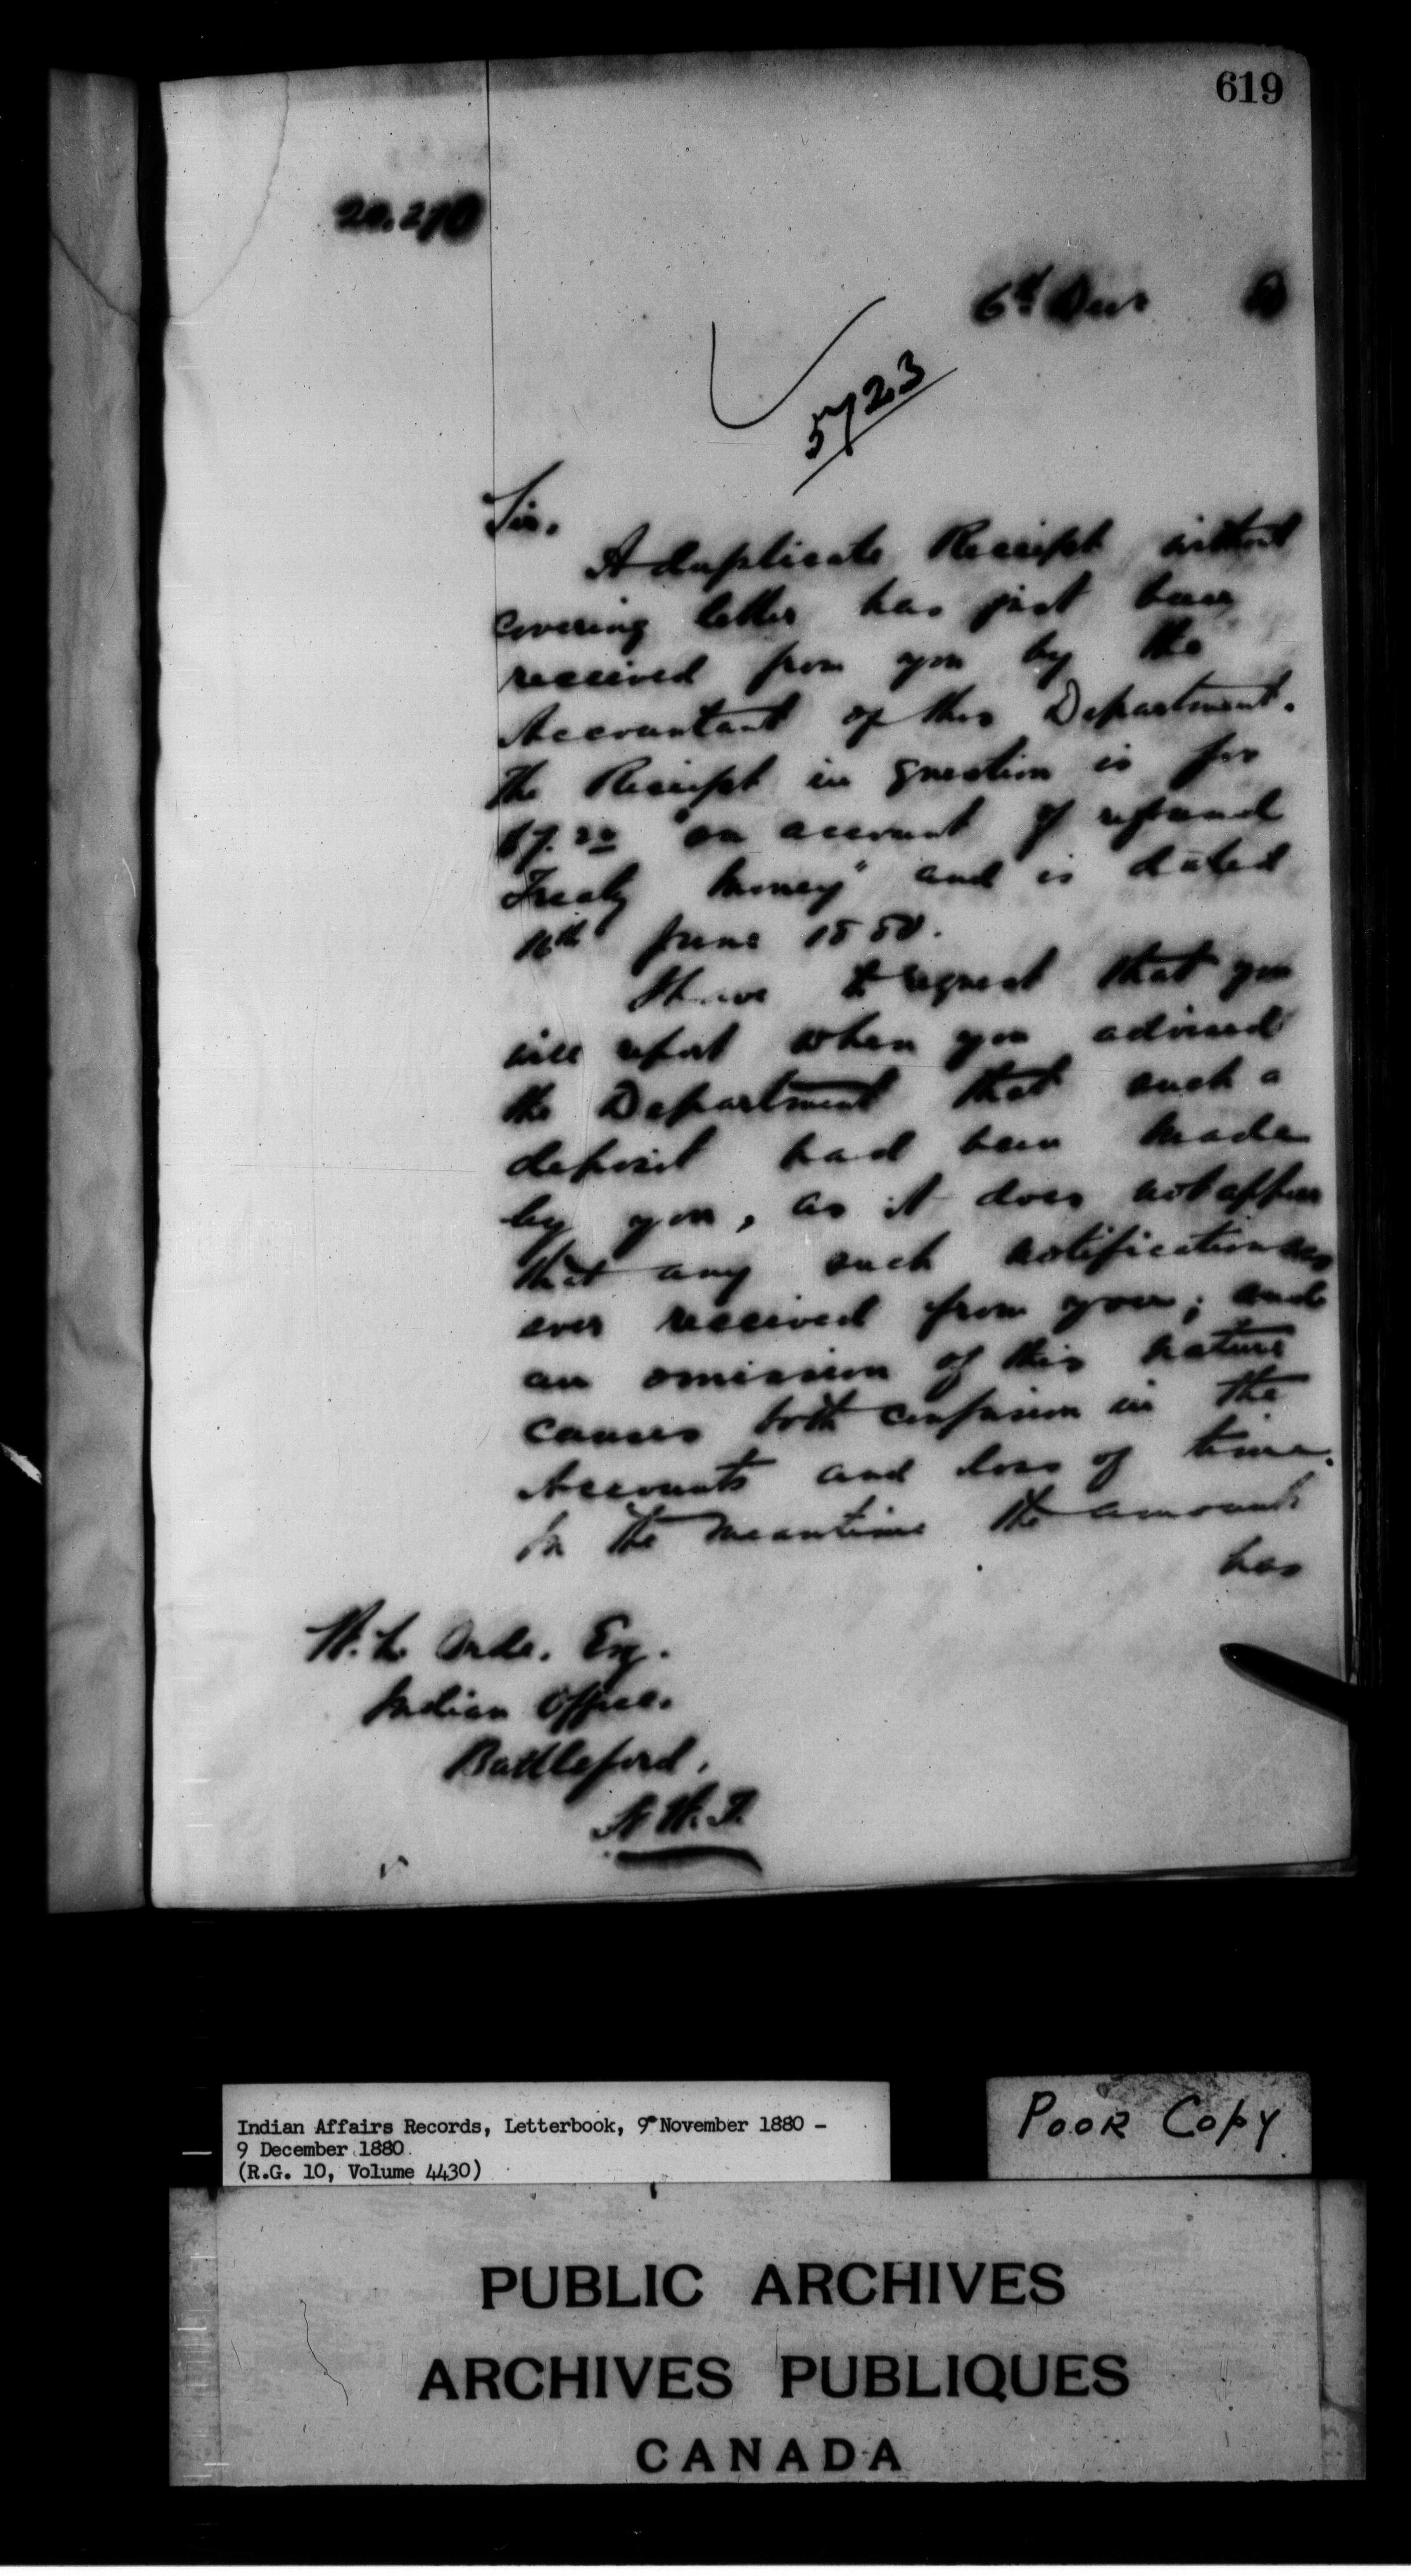 619
20.270
6th Decr 80
5723
Sir,
A duplicate Receipt without
covering letter has just been
received from you by the
Accountant of this Department.
The Receipt in question is for
"on account of refund
Treaty money" and is dated
16th June 1880.
I have to request that you
will report when you advised
the Department that such a
deposit had been made
by you, as it does not appear
that any such notification was
ever received from you; and
an omission of this nature
causes both confusion in the
Accounts and loss of time.
In the meantime the amount
has
W. L. Orde. Esq.
Indian Office.
Battleford,
N. W. T.
Indian Affairs Records, Letterbook, 9 November 1880 -
9 December 1880.
(R.G. 10, Volume 4430)
POOR COPY
PUBLIC ARCHIVES
ARCHIVES PUBLIQUES
CANADA